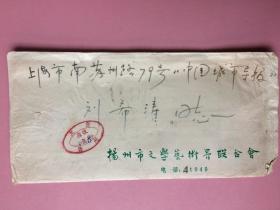 上海市南苏州路79号《中国城市导报》
刘希涛 同志
扬州市文學藝術界联合會
电话:41949